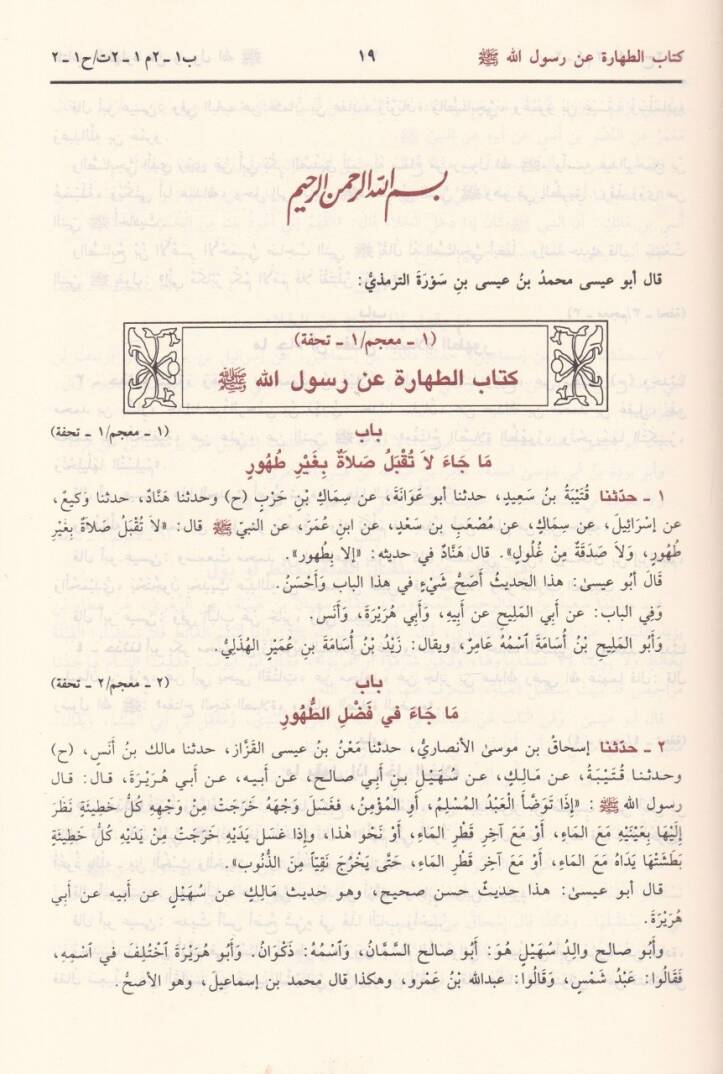 كتاب الطهارة عن رسول الله ﷺ
١٩
ب١ - ٢م ١ - ٢ت/ح١ - ٢
بسم الله الرحمن الرحيم
قال أبو عيسى محمدُ بنُ عيسى بنِ سَوْرَةَ الترمذيُّ:
(١ - معجم/١ - تحفة)
كتاب الطهارة عن رسول الله ﷺ
باب
(١ - معجم/١ - تحفة)
مَا جَاءَ لاَ تُقْبَلُ صَلاَةٌ بِغَيْرِ طُهُورٍ
١ - حدّثنا قُتَيْبَةُ بنُ سَعِيدٍ، حدثنا أبو عَوَانَةَ، عن سِمَاكِ بْنِ حَرْبٍ (ح) وحدثنا هَنَّادٌ، حدثنا وكيعٌ،
عن إسْرَائِيلَ، عن سِمَاكٍ، عن مُصْعَبِ بن سَعْدٍ، عن ابنِ عُمَرَ، عن النبيِّ ﷺ قال: «لاَ تُقْبَلُ صَلاَةٌ بِغَيْرِ
طُهُورٍ، وَلاَ صَدَقَةٌ مِنْ غُلُولٍ». قال هَنَّادٌ في حديثه: «إلا بِطُهور».
قَالَ أبُو عيسىٰ: هذا الحديثُ أَصَحُّ شَيْءٍ في هذا الباب وَأَحْسَنُ.
وَفِي الباب: عن أبي المَلِيحِ عن أَبِيهِ، وَأَبِي هُرَيْرَةَ، وَأَنَسٍ.
وَأَبُو المَلِيحِ بْنُ أُسَامَةَ ٱسْمُهُ عَامِرٌ، ويقال: زَيْدُ بْنُ أُسَامَةَ بنِ عُمَيْرٍ الهُذَلِيُّ.
باب
(٢ - معجم/٢ - تحفة)
مَا جَاءَ في فَضْلِ الطُّهُورِ
٢ - حدّثنا إسحاقُ بن موسىٰ الأنصاريُّ، حدثنا مَعْنُ بنُ عيسى القَزَّاز، حدثنا مالك بنُ أنَسٍ، (ح)
وحدثنا قُتَيْبَةُ، عن مَالِكٍ، عن سُهَيْلِ بْنِ أبي صالح، عن أبيه، عن أبي هُرَيْرَةَ، قال: قال
رسول الله ﷺ: «إذَا تَوَضَّأَ الْعَبْدُ المُسْلِمُ، أوِ المُؤْمِنُ، فغَسَلَ وَجْهَهُ خَرَجَتْ مِنْ وَجْهِهِ كُلُّ خَطِيئَةٍ نَظَرَ
إلَيْهَا بِعَيْنَيْهِ مَعَ المَاءِ، أوْ مَعَ آخِرِ قَطْرِ المَاءِ، أوْ نَحْوِ هٰذا، وإذا غسل يَدَيْهِ خَرَجَتْ مِنْ يَدَيْهِ كُلُّ خَطِيئَةٍ
بَطَشَتْهَا يَدَاهُ مَعَ المَاءِ، أوْ مَعَ آخِرِ قَطْرِ المَاءِ، حَتَّى يَخْرُجَ نَقِيّاً مِنَ الذُّنُوب».
قال أبو عيسىٰ: هذا حديثٌ حسن صحيح، وهو حديث مَالِكٍ عن سُهَيْلٍ عن أبيه عن أبي
هُرَيْرَةَ.
وأَبُو صالح والِدُ سُهَيْلٍ هُوَ: أبو صالح السَّمَّانُ، وَٱسْمُهُ: ذَكْوَانُ. وَأَبُو هُرَيْرَةَ ٱخْتُلِفَ في ٱسْمِهِ،
فَقَالُوا: عَبْدُ شَمْسٍ، وَقَالُوا: عبدالله بْنُ عَمْرو، وهكذا قال محمد بن إسماعيل، وهو الأصحُّ.